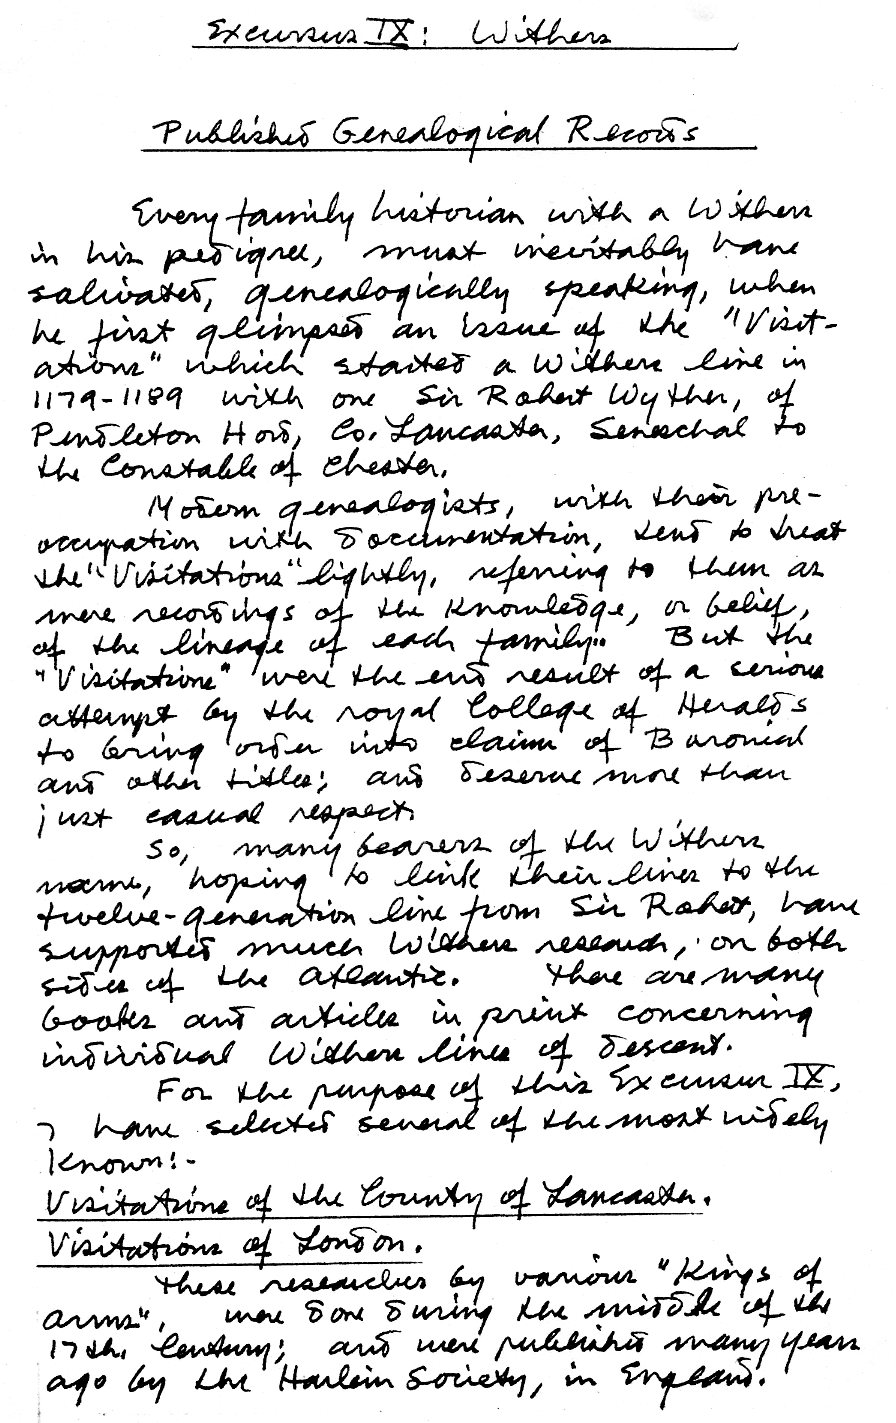 Excursus IX: Withers
Published Genealogical Records
Every family historian with a Withers
in his pedigree, must inevitably have
salivated, genealogically speaking, when
he first glimpsed an issue of the "Visit-
ations" which started a Withers line in
1179-1189 with one Sir Robert Wyther, of
Pendleton Hord, Co. Lancaster, Seneschal to
the Constable of Chester.
Modern genealogists, with their pre-
occupation with documentation, tend to treat
the "Visitations" lightly, referring to them as
mere recordings of the knowledge, or belief,
of the lineage of each family.. But the
"Visitations" were the end result of a serious
attempt by the royal College of Heralds
to bring order into claims of Baronial
and other titles; and deserve more than
just casual respect.
So, many bearers of the Withers
name, hoping to link their lines to the
twelve-generation line from Sir Robert, have
supported much Withers research, on both
sides of the Atlantic. There are many
books and articles in print concerning
individual Withers lines of descent.
For the purpose of this Excursus IX,
I have selected several of the most widely
known:-
Visitations of the County of Lancaster.
Visitations of London.
These researches by various "Kings of
Arms", were done during the middle of the
17th. Century; and were published many years
ago by the Harlein Society, in England.